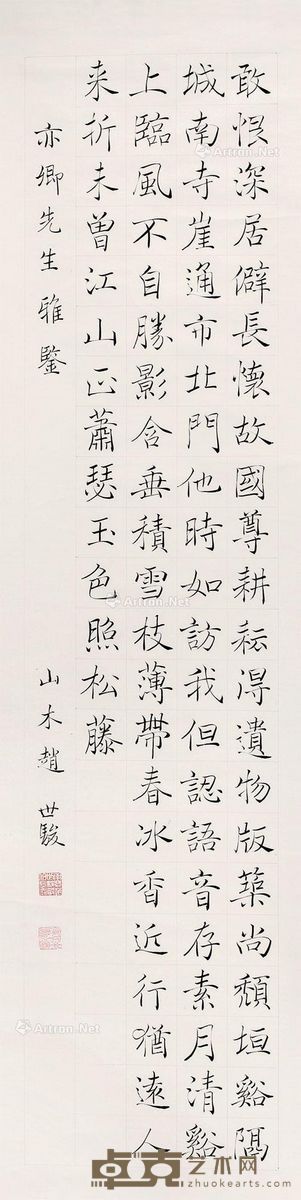 敢恨深居僻長懷故國尊耕耘淂遺物版築尚頹垣谿隅
城南寺崖通市北門他時如訪我但認語音存素月清谿
上臨風不自勝影含垂積雪枝薄帶春冰香近行猶遠人
来折未曾江山正蕭瑟玉色照松藤
亦卿先生雅鑒
山木趙世駿
Artron.Net
Artron.Net
Artron.Net
卓克艺术网
zhuokearts.com